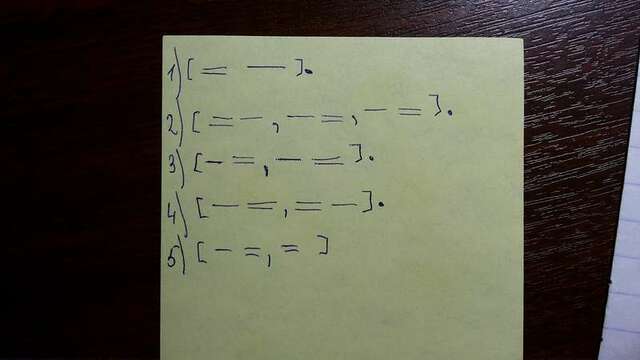 1) [ = — ].
2) [ = —, — =, — = ].
3) [ — =, — = ].
4) [ — =, = — ].
5) [ — =, = ]